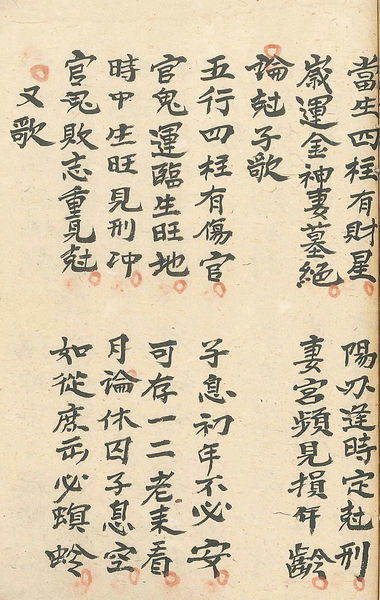 當生四柱有財星　陽刃逢時定尅刑
歲運金神妻墓絕　妻宮頻見損年齡
論尅子歌
五行四柱有傷官　子息初年不必安
官鬼運臨生旺地　可存一二老来看
時中生旺見刑冲　月論休囚子息空
官鬼敗忘重見尅　如從庶出必螟蛉
又歌